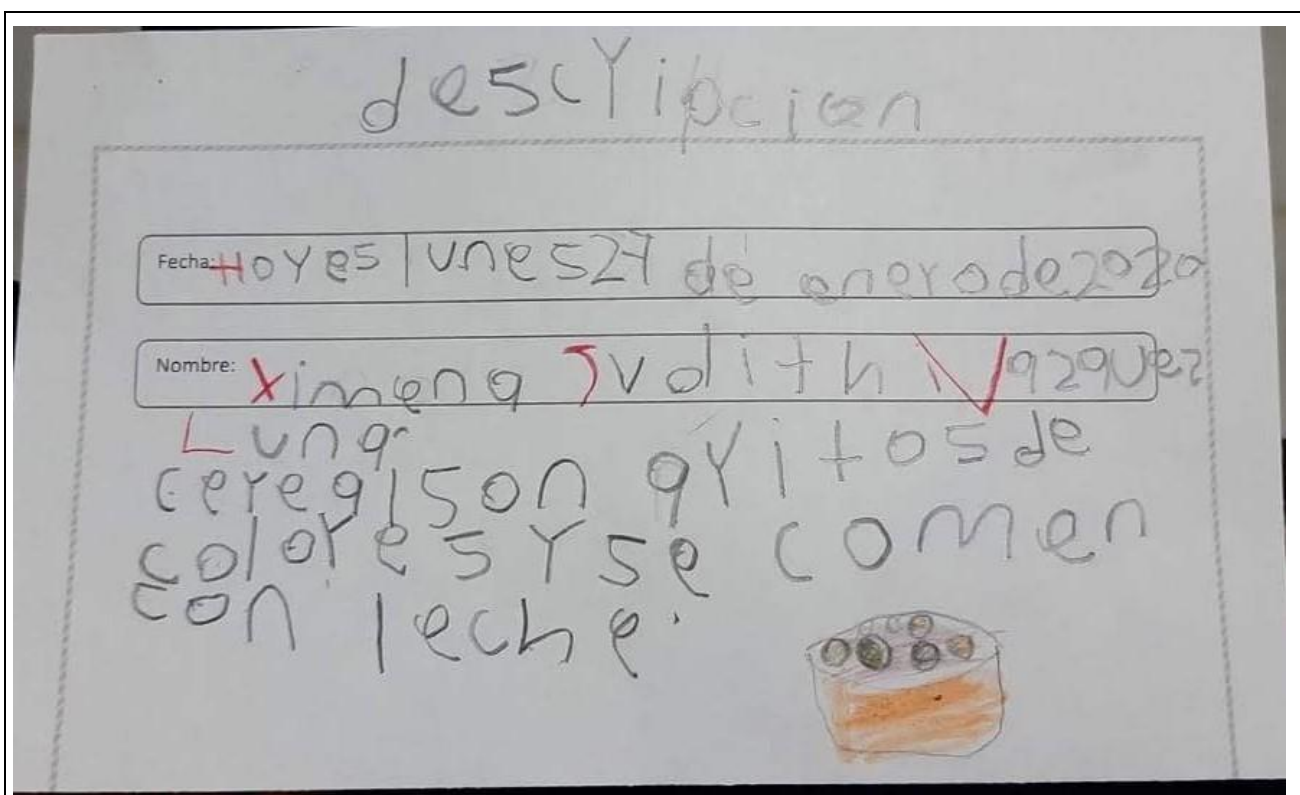 descripcion
Fecha: Hoy es lunes 27 de enero de 2020
Nombre: Ximena Judith Vazquez
Luna
cereal son aritos de
colores y se comen
con leche.